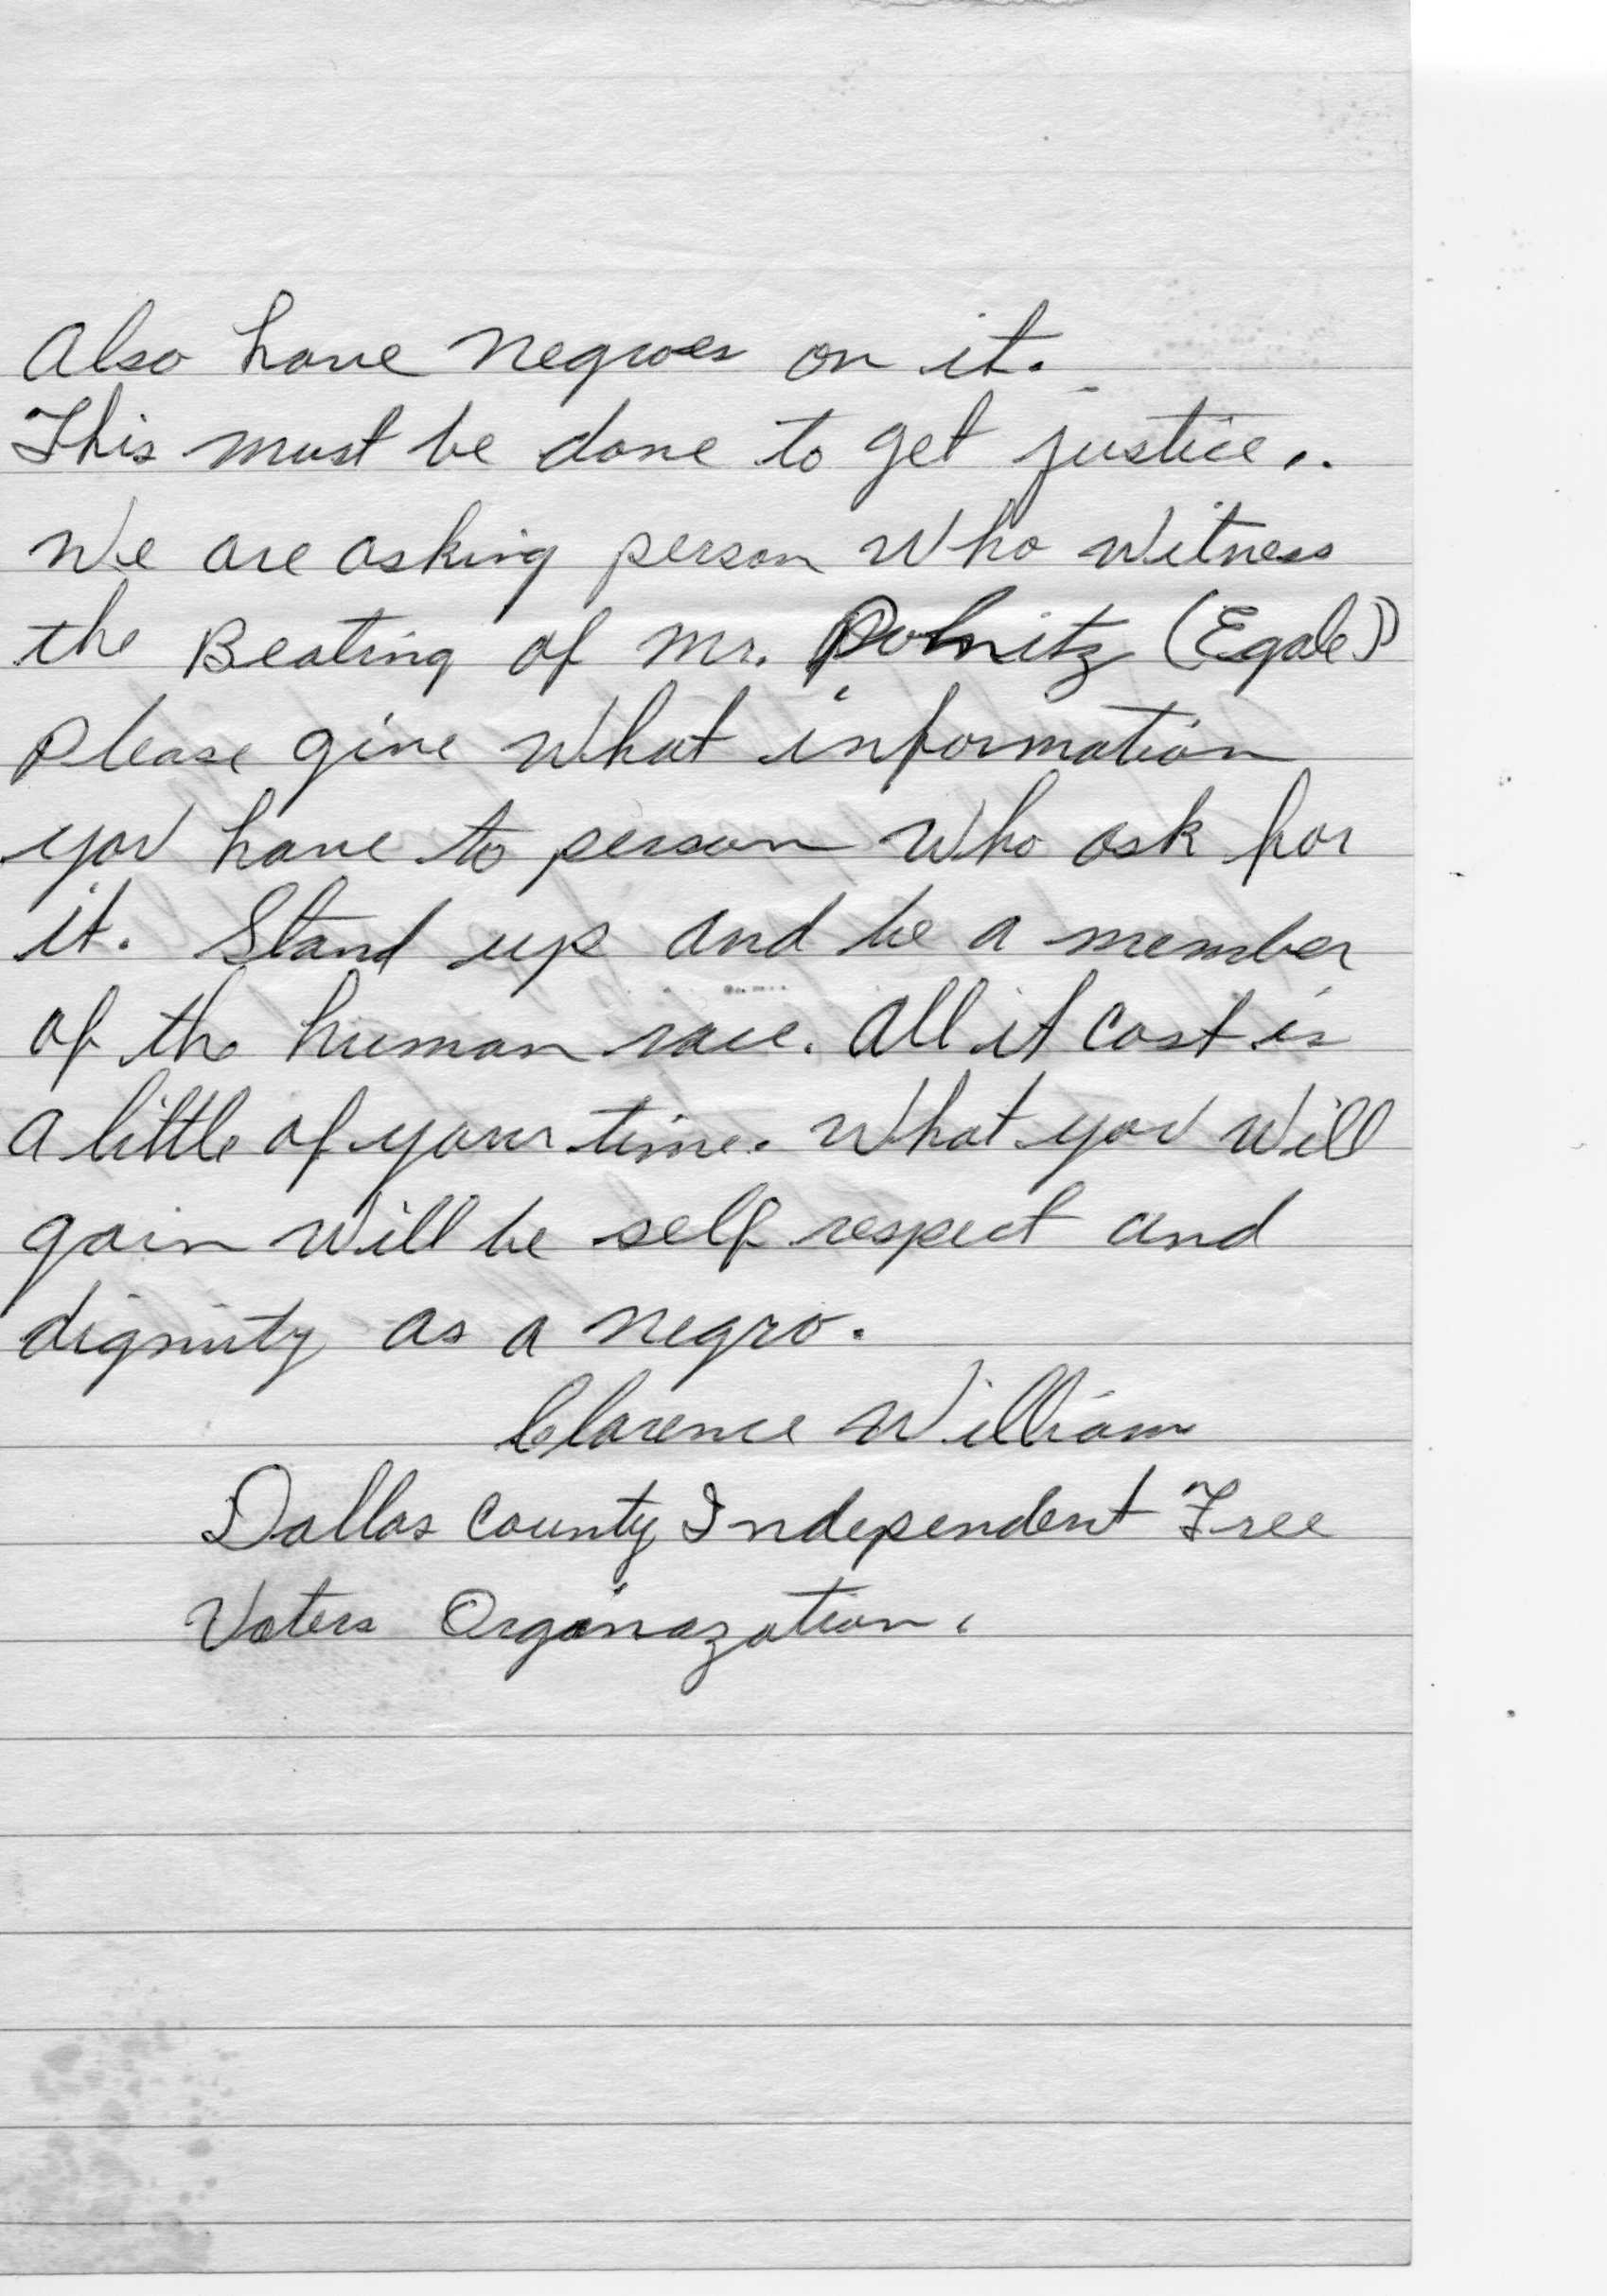 Also have negroes on it.
This must be done to get justice..
We are asking person who witness
the Beating of mr. Polnitz (Egale)
please give what information
you have to person who ask for
it. Stand up and be a member
of the human race. all it cost is
a little of your time. what you will
gain will be self respect and
dignity as a negro.
Clarence William
Dallas County Independent Free
Voters Organazation.